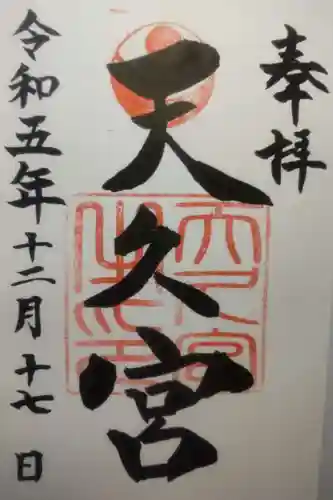 奉拝
天久宮
令和五年十二月十七日